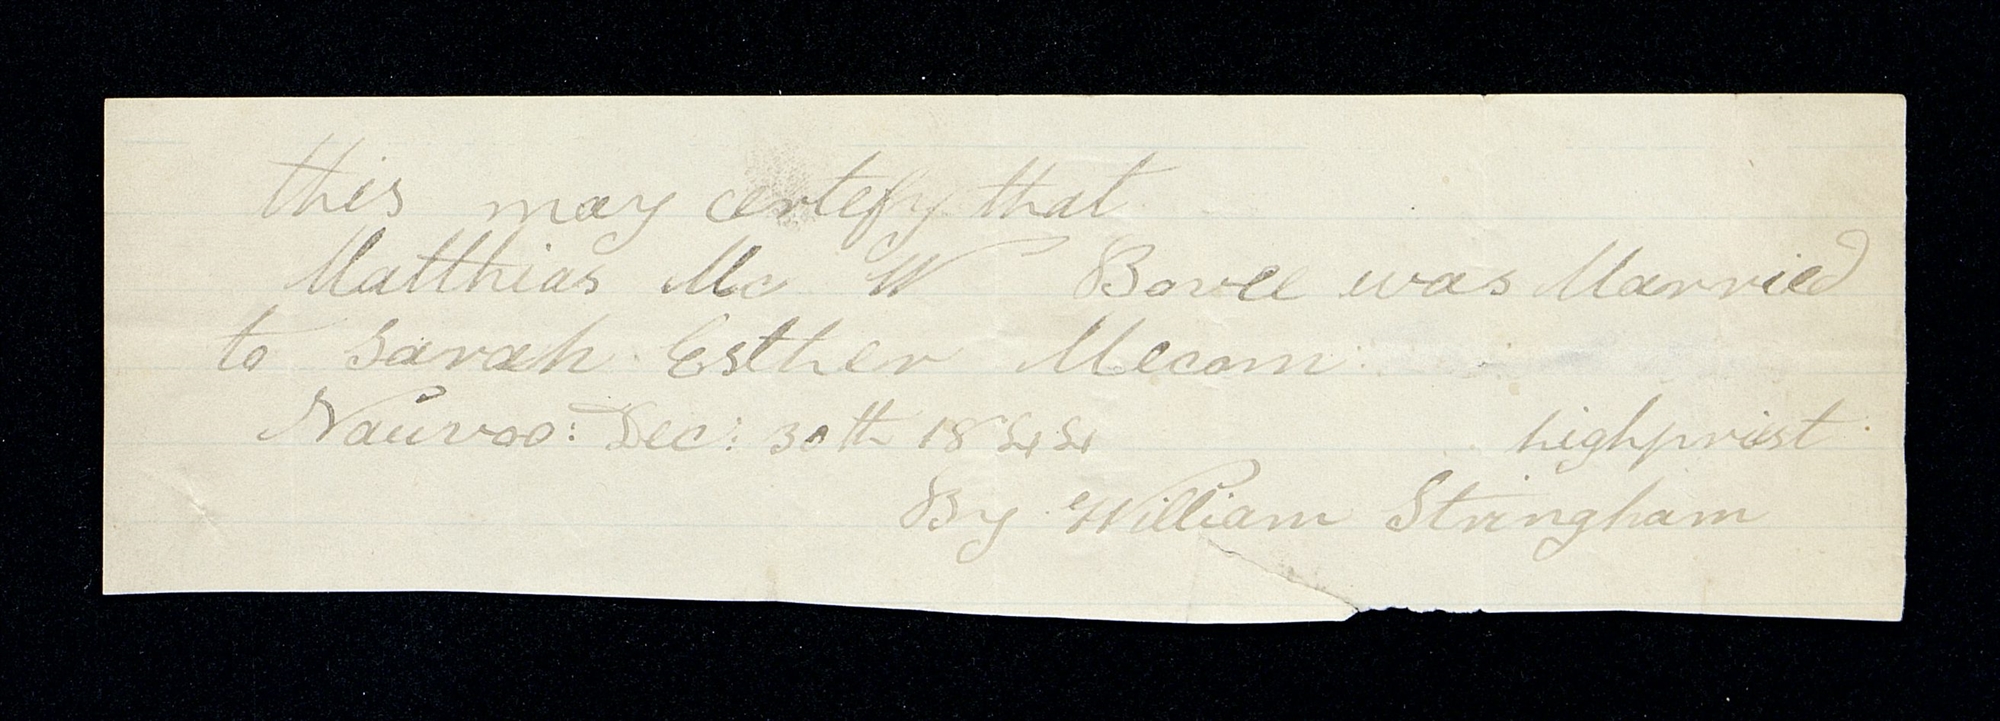 this may certefy that
Matthias Mc W Bovee was Married
to Sarah Esther Mecom
Nauvoo: Dec: 30th 1844 highpriest
By William Stringham